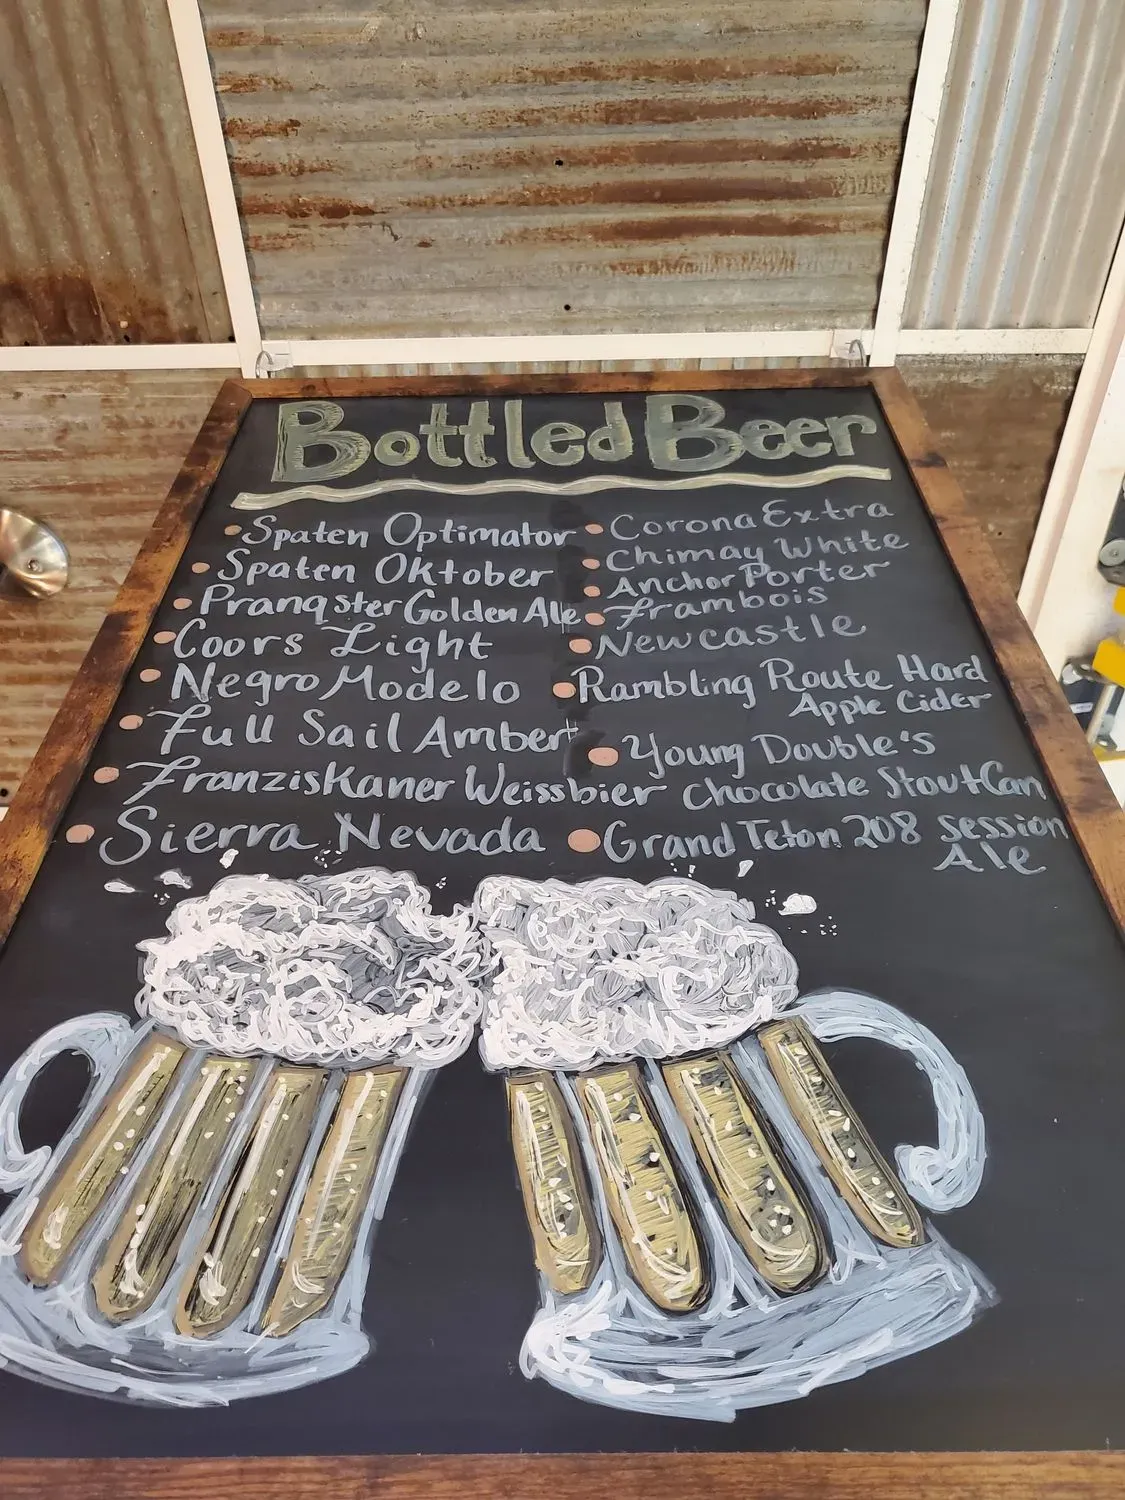 Bottled Beer
• Spaten Optimator
• Spaten Oktober
• Pranqster Golden Ale
• Coors Light
• Negro Modelo
• Full Sail Amber
• Franziskaner Weissbier
• Sierra Nevada
• Corona Extra
• Chimay White
• Anchor Porter
• Frambois
• Newcastle
• Rambling Route Hard
Apple Cider
• Young Double's
Chocolate Stout Can
• Grand Teton 208 Session
Ale